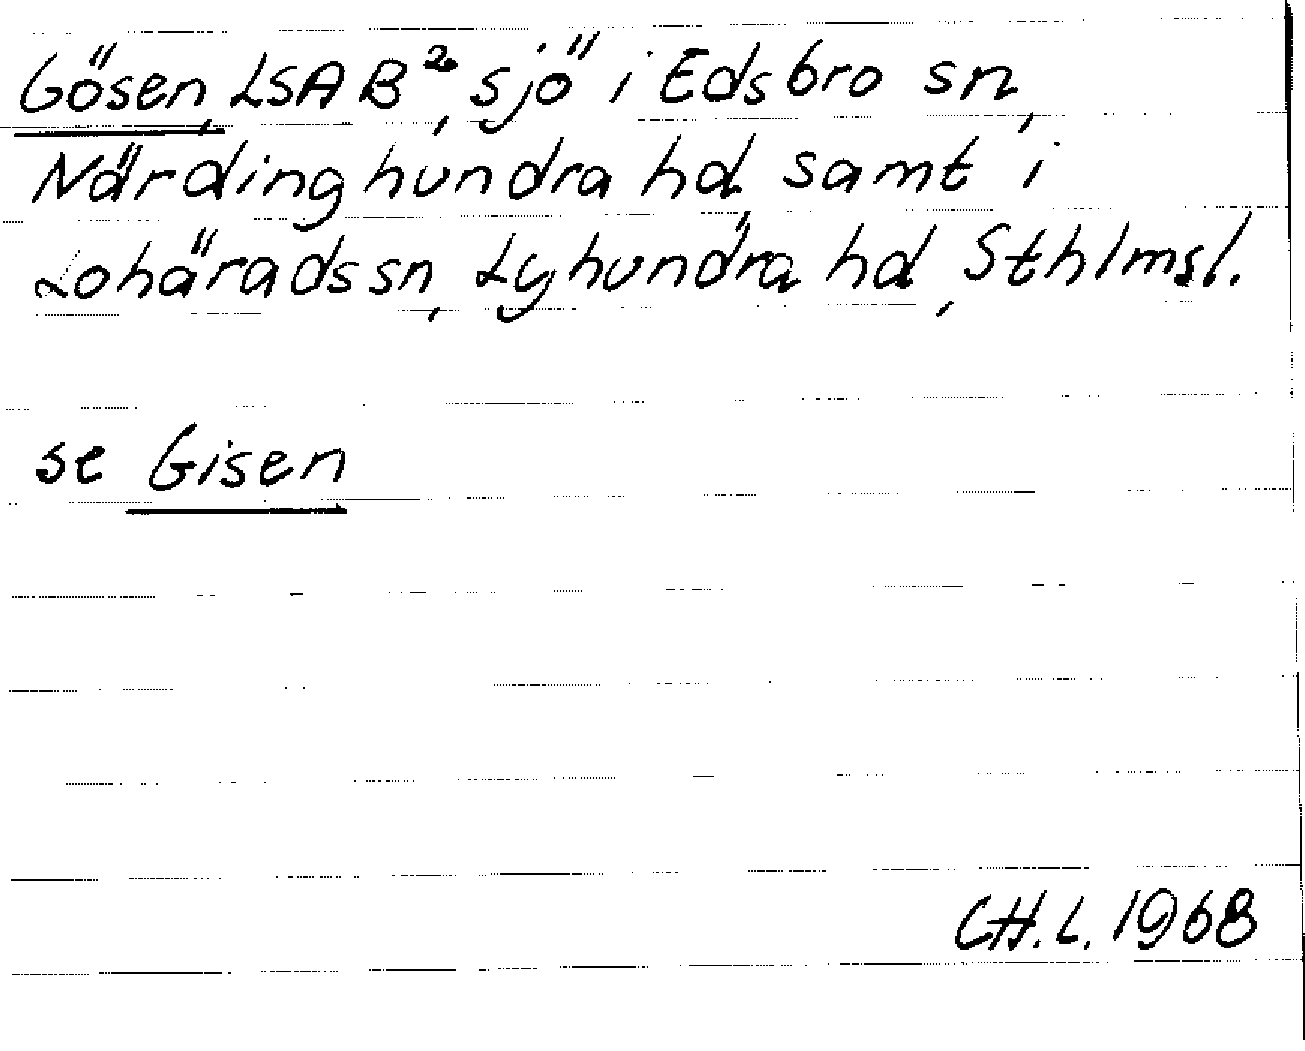 Gösen, LSA B², sjö i Edsbro sn,
Närdinghundra hd, samt i
Lohärads sn, Lyhundra hd, Sthlmsl.
se Gisen
CH.L. 1968